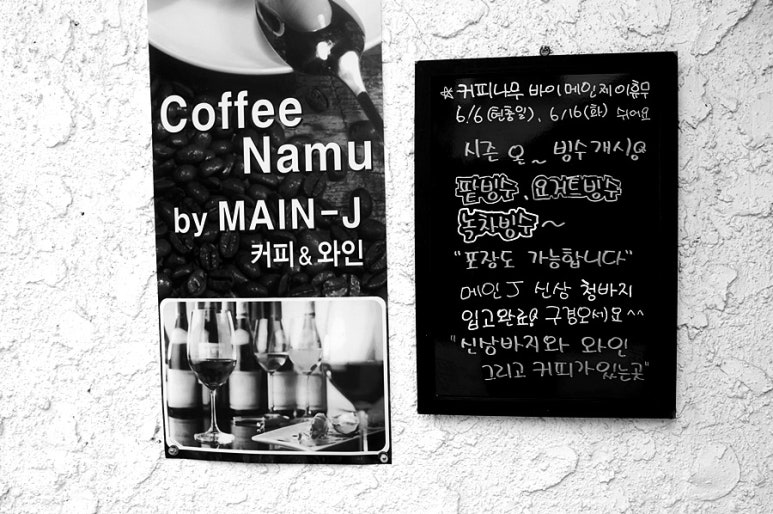 Coffee
Namu
by MAIN-J
커피 & 와인
☆ 커피나무 바이 메인제이 휴무
6/6 (현충일), 6/16 (화) 쉬어요
시즌 오~ 빙수개시!
팥빙수, 요거트빙수
녹차빙수~
"포장도 가능합니다"
메인J 신상 청바지
입고완료! 구경오세요^^
"신상바지와 와인
그리고 커피가 있는곳"